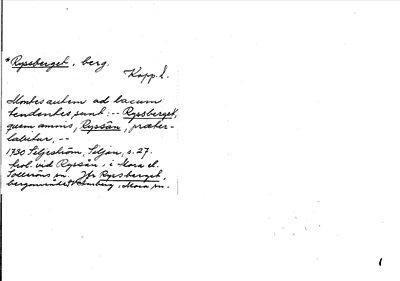 *Rysberget, berg.
Kopp. l.
Montes autem ad lacum
tendentes, sunt: -- Rysberget,
quem amnis, Ryssån, præter-
labitur, --
1730 Siljeström, Siljan, s. 27.
trol. vid Ryssån, i Mora el.
Solleröns sn. Jfr Rysberget,
bergområde, Mora sn.